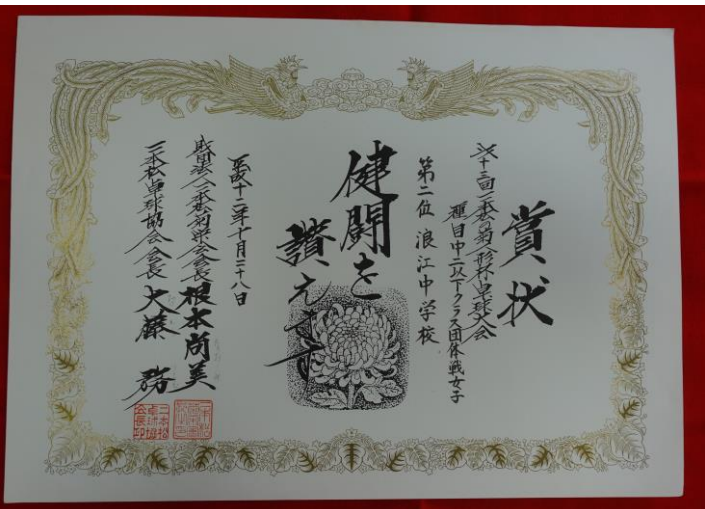 賞状
第十三回二本松の菊人形杯卓球大会
種目中二以下クラス団体戦女子
第二位 浪江中学校
健闘を
讃えます
平成十二年十月二十八日
財団法人二本松菊栄会会長 根本尚美
二本松卓球協会会長 大藤 務
二本松
卓球協
会長印